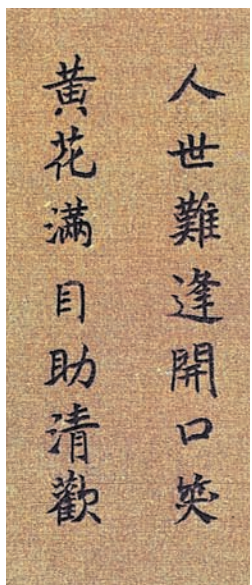 人世難逢開口笑
黃花滿目助清歡